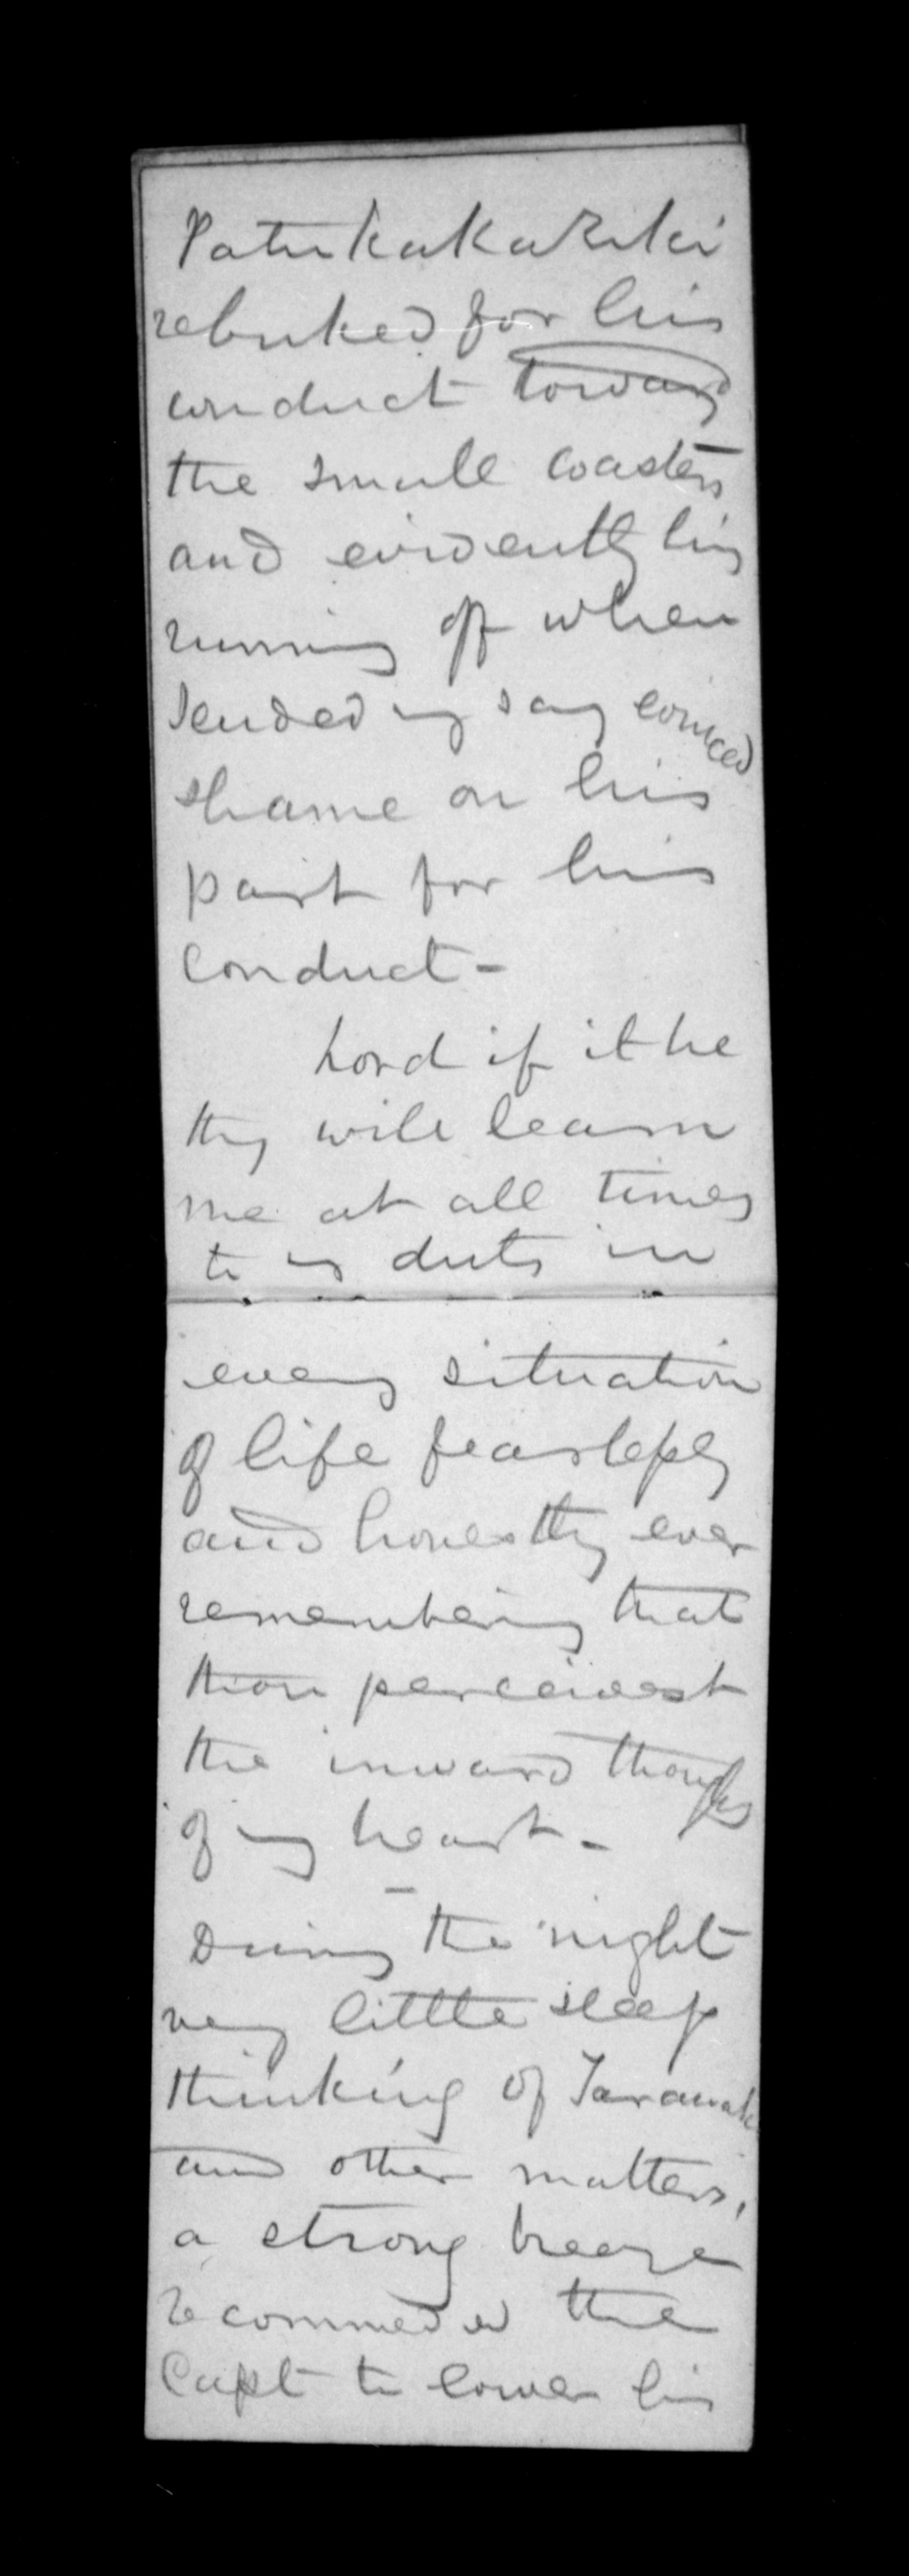 Patukakariki
rebuked for his
conduct towards
the small coasters
and evidently his
running off when
landed my say evinced
shame on his
part for his
conduct -
Lord if it be
thy will learn
me at all times
to my duty in
every situation
of life fearlessly
and honestly ever
remembering that
thou perceivest
the inward thoughts
of my heart -
During the night
very little sleep
thinking of Taranaki
and other matters,
a strong breeze
recommeded the
Capt to lower his